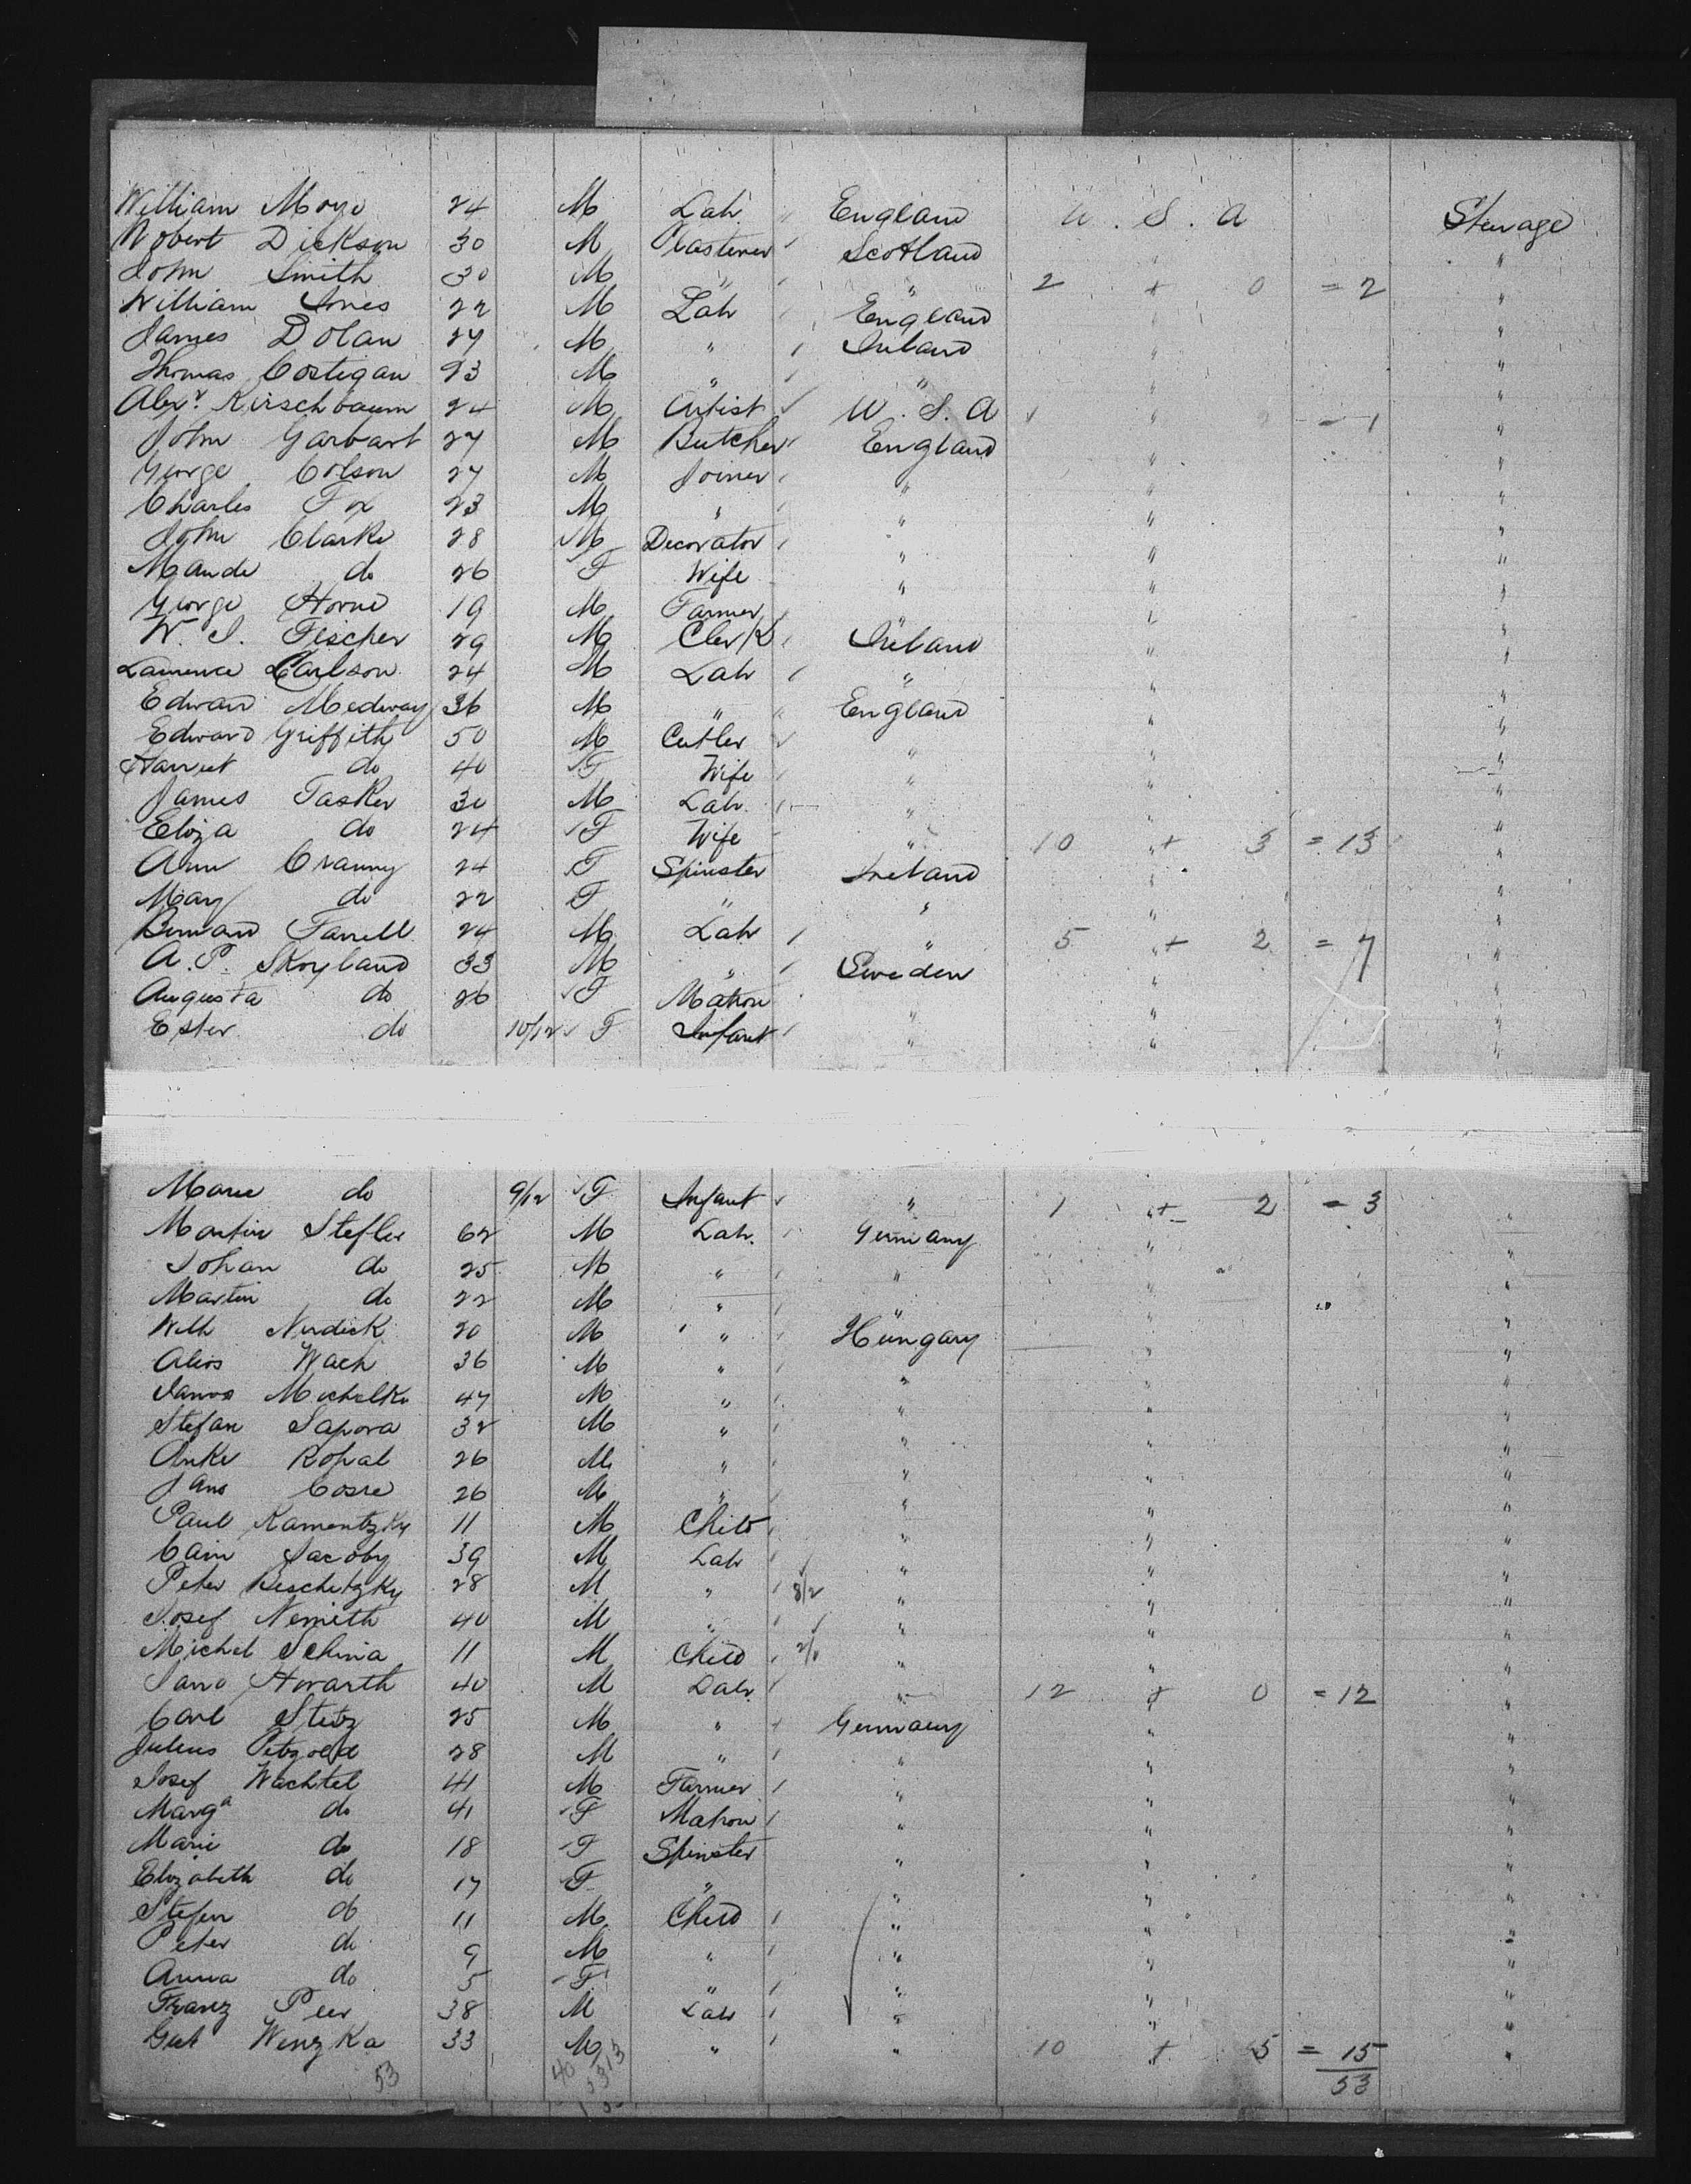 William Moye 24 M Lab. " England U. S. A Steerage
Robert Dickson 30 M Plasterer Scotland " "
John Smith 30 M " " 2 + 0 = 2 "
William Jones 22 M Lab England " "
James Dolan 27 M " Ireland " "
Thomas Costigan 23 M " " " "
Alexr. Kirschbaum 24 M Artist U. S. A " - 1 "
John Garbart 27 M Butcher England " "
George Colson 27 M Joiner " " "
Charles Fox 23 M " " " "
John Clarke 28 M Decorator " " "
Maude do 26 F Wife " " "
George Horne 19 M Farmer " " "
W. J. Fischer 29 M Clerk Ireland " "
Laurence Carlson 24 M Lab " " "
Edward Medway 36 M " England " "
Edward Griffith 50 M Cutler " " "
Harriet do 40 F Wife " " "
James Tasker 30 M Lab. " " "
Eliza do 24 F Wife " 10 + 3 = 13 "
Ann Cranny 24 F Spinster Ireland " "
Mary do 22 F " " " "
Bernard Farrell 24 M Lab " 5 + 2 = 7 "
A. P. Skoyland 33 M " Sweden " "
Augusta do 26 F Matron " " "
Ester do 10/12 F Infant " " "
Marie do 9/12 F Infant " 1 + 2 = 3 "
Martin Stefler 62 M Lab. Germany " "
Johan do 25 M " " " "
Martin do 22 M " " " "
Wilh Nerdick 20 M " Hungary " "
Alios Wach 36 M " " " "
Janos Michalke 47 M " " " "
Stefan Sapora 32 M " " " "
Anke Kopal 26 M " " " "
Jano Cosre 26 M " " " "
Paul Kamentzky 11 M Child " " "
Cain Jacoby 39 M Lab " " "
Peter Beschetzky 28 M " 8/2 " " "
Josef Nemeth 40 M " " " "
Michel Schina 11 M Child " " "
Jano Horvarth 40 M Lab. " 12 + 0 = 12 "
Carl Stetz 25 M " Germany " "
Julius Petzold 28 M " " " "
Josef Wachtel 41 M Farmer " " "
Marga do 41 F Matron " " "
Marie do 18 F Spinster " " "
Elizabeth do 17 F " " " "
Stefen do 11 M Child " " "
Peter do 9 M " " " "
Anna do 5 F " " " "
Franz Peer 38 M Lab " " "
Gut Wenzka 33 M " " 10 + 5 = 15 "
53 40 13 53